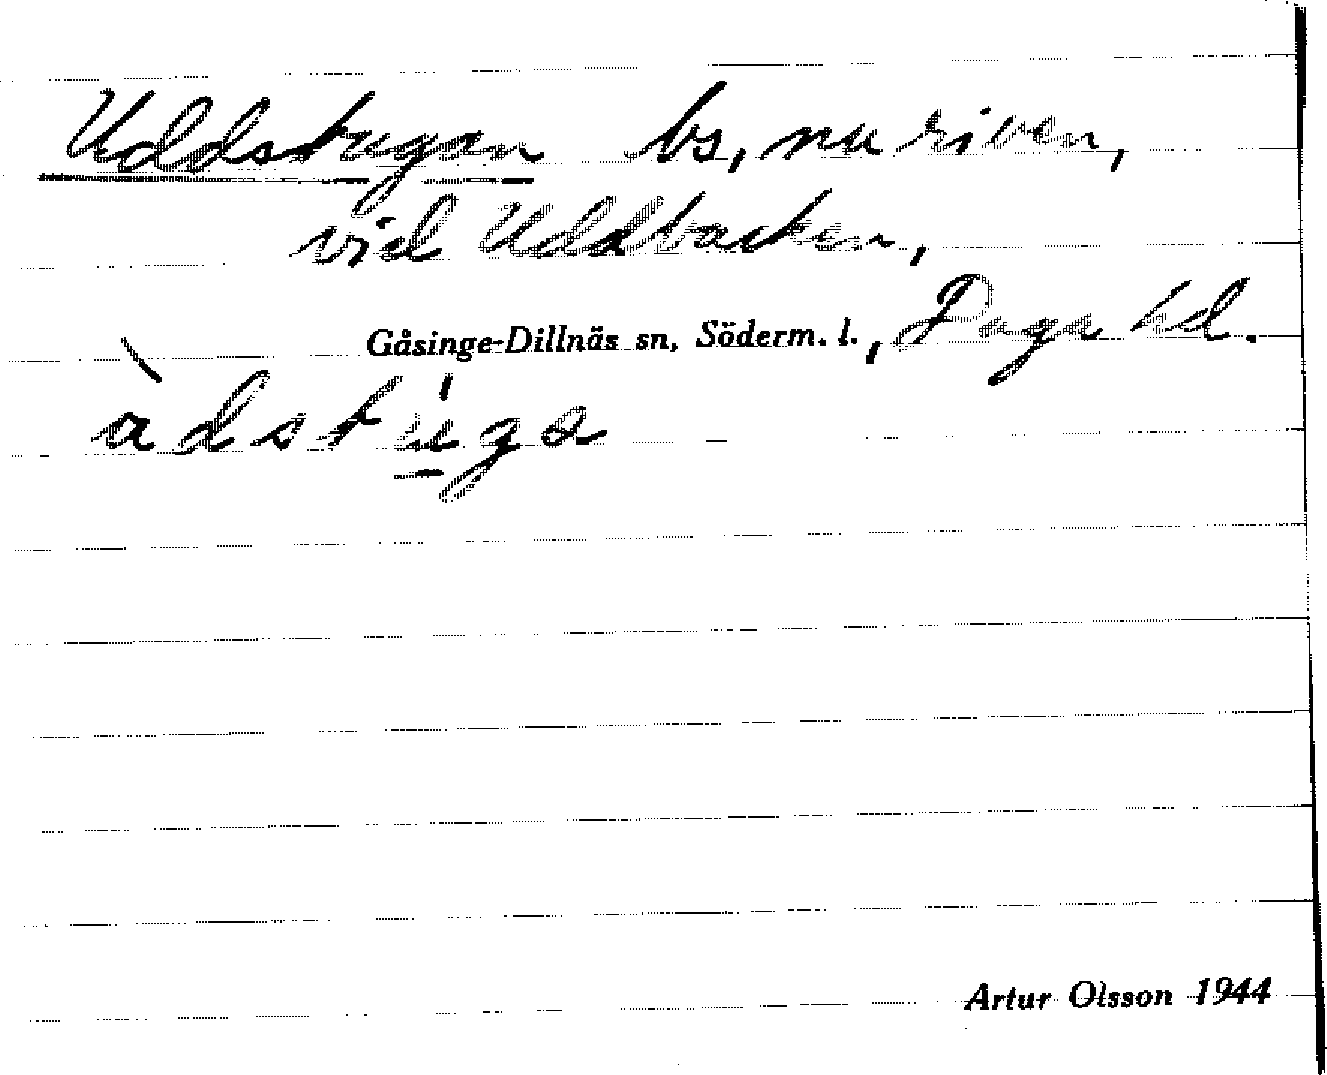 Uddstugan bs, nu riven,
vid Uddbacken,
Gåsinge-Dillnäs sn, Söderm. l., Daga hd.
àdstúga
Artur Olsson 1944